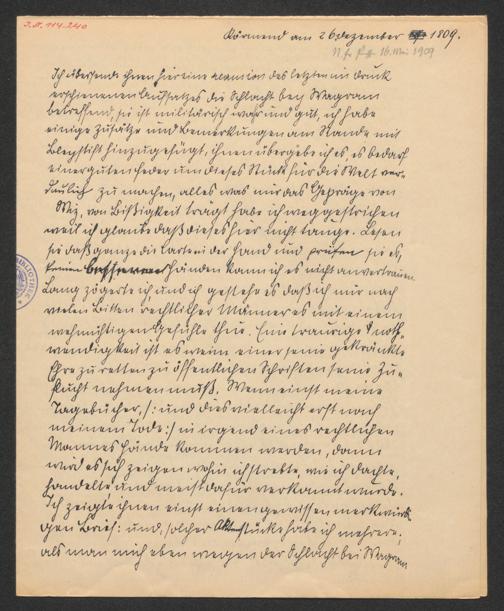 J.N. 114.240
Körmend am 26 Dezember 1809.
N. fr. Pr. 16. Mai 1909
Ich übersende ihnen hier eine recension des letzten im druk
erschienenen Aufsatzes die Schlacht bey Wagram
betreffend, sie ist militärisch wahr und gut, ich habe
einige Zusätze und Bemerkungen am Rande mit
Bleystift hinzugefügt, ihnen übergebe ich es, es bedarf
einer guten Feder um dieses Stück für die Welt ver-
daulich zu machen, alles was nur das Gepräge von
von Bißigkeit tragt habe ich weggestrichen
weil ich glaube daß dieses hier nicht tauge. Lesen
sie daß ganze die Carte in der Hand und prüfen sie es,
händen kann ich es nicht anvertrauen
Lang zögerte ich und ich gestehe es daß ich nur nach
vielen Bitten rechtlicher Männer es mit einem
wehmüthigen Gefühle thue. Eine traurige noth-
wendigkeit ist es wenn einer seine gekränkte
Ehre zu retten zu öffentlichen Schriften seine Zu-
flucht nehmen muß. Wenn einst meine
Tagebücher, /: und dies vielleicht erst nach
meinem Tode :/ in irgend eines rechtlichen
Mannes Hände kommen werden, dann
wird es sich zeigen wohin ich strebte, wie ich dachte,
handelte und meist dafür verkannt wurde.
Ich zeigte ihnen einst einen gewissen merkwürdi-
gen Brief: und solcher Aktenstücke habe ich mehrere;
als man mich eben wegen der Schlacht bei Wagram